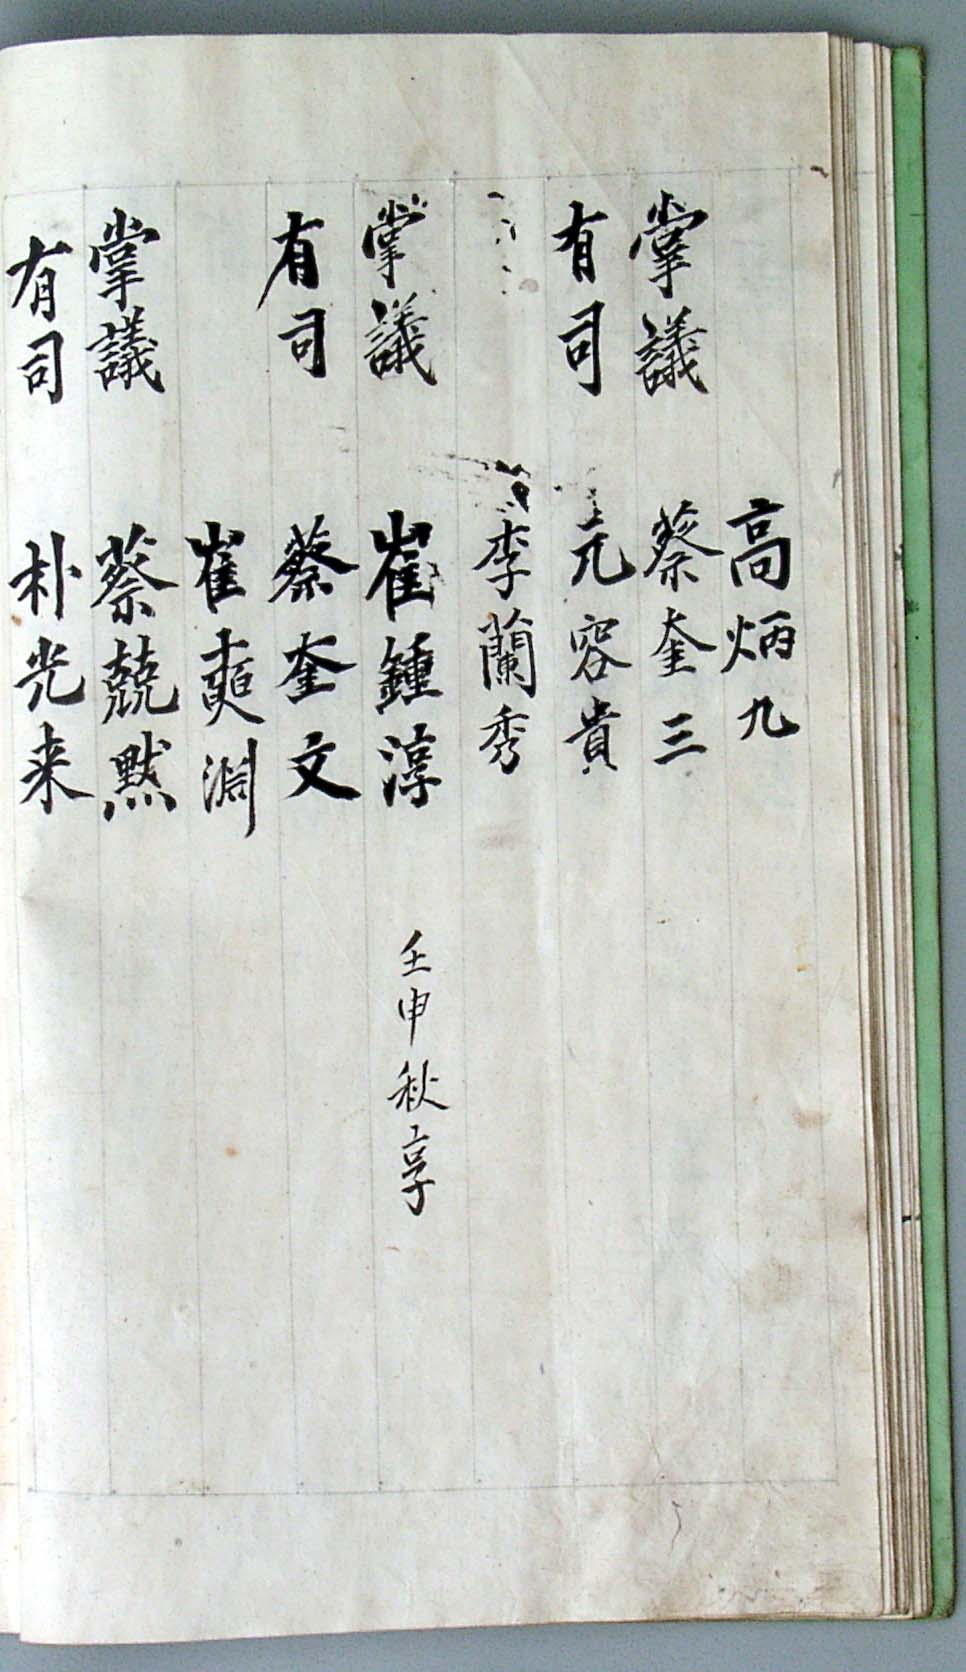 高炳九
掌議 蔡奎三
有司 元容貴
李蘭秀
掌議 崔鍾淳 壬申秋享
有司 蔡奎文
崔 淵
掌議 蔡兢默
有司 朴光来